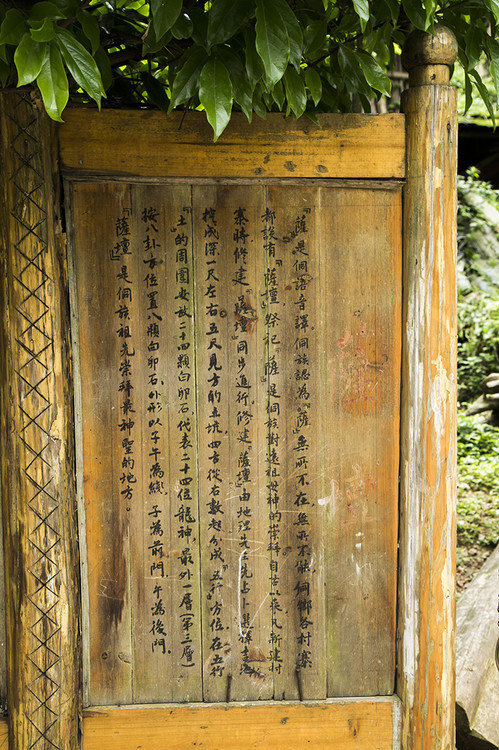 『薩』是侗語音譯，侗族認為『薩』無所不在、無所不能，侗鄉各村寨
都設有『薩壇』祭祀『薩』是侗族對遠祖母神的崇拜，自古以來凡新建村
寨將修建『薩壇』同步進行，修建『薩壇』由地理先生先占卜選擇吉地
挖成深一尺左右五尺見方的土坑四方從右數起分成『五行』方位，在五行
『土』的周圍安放二十四顆白卵石代表二十四位龍神，最外一層（第三層）
按八卦方位置八顆白卵石，外形以子午為綫，子為前門，午為後門。
『薩壇』是侗族祖先崇拜最神聖的地方。